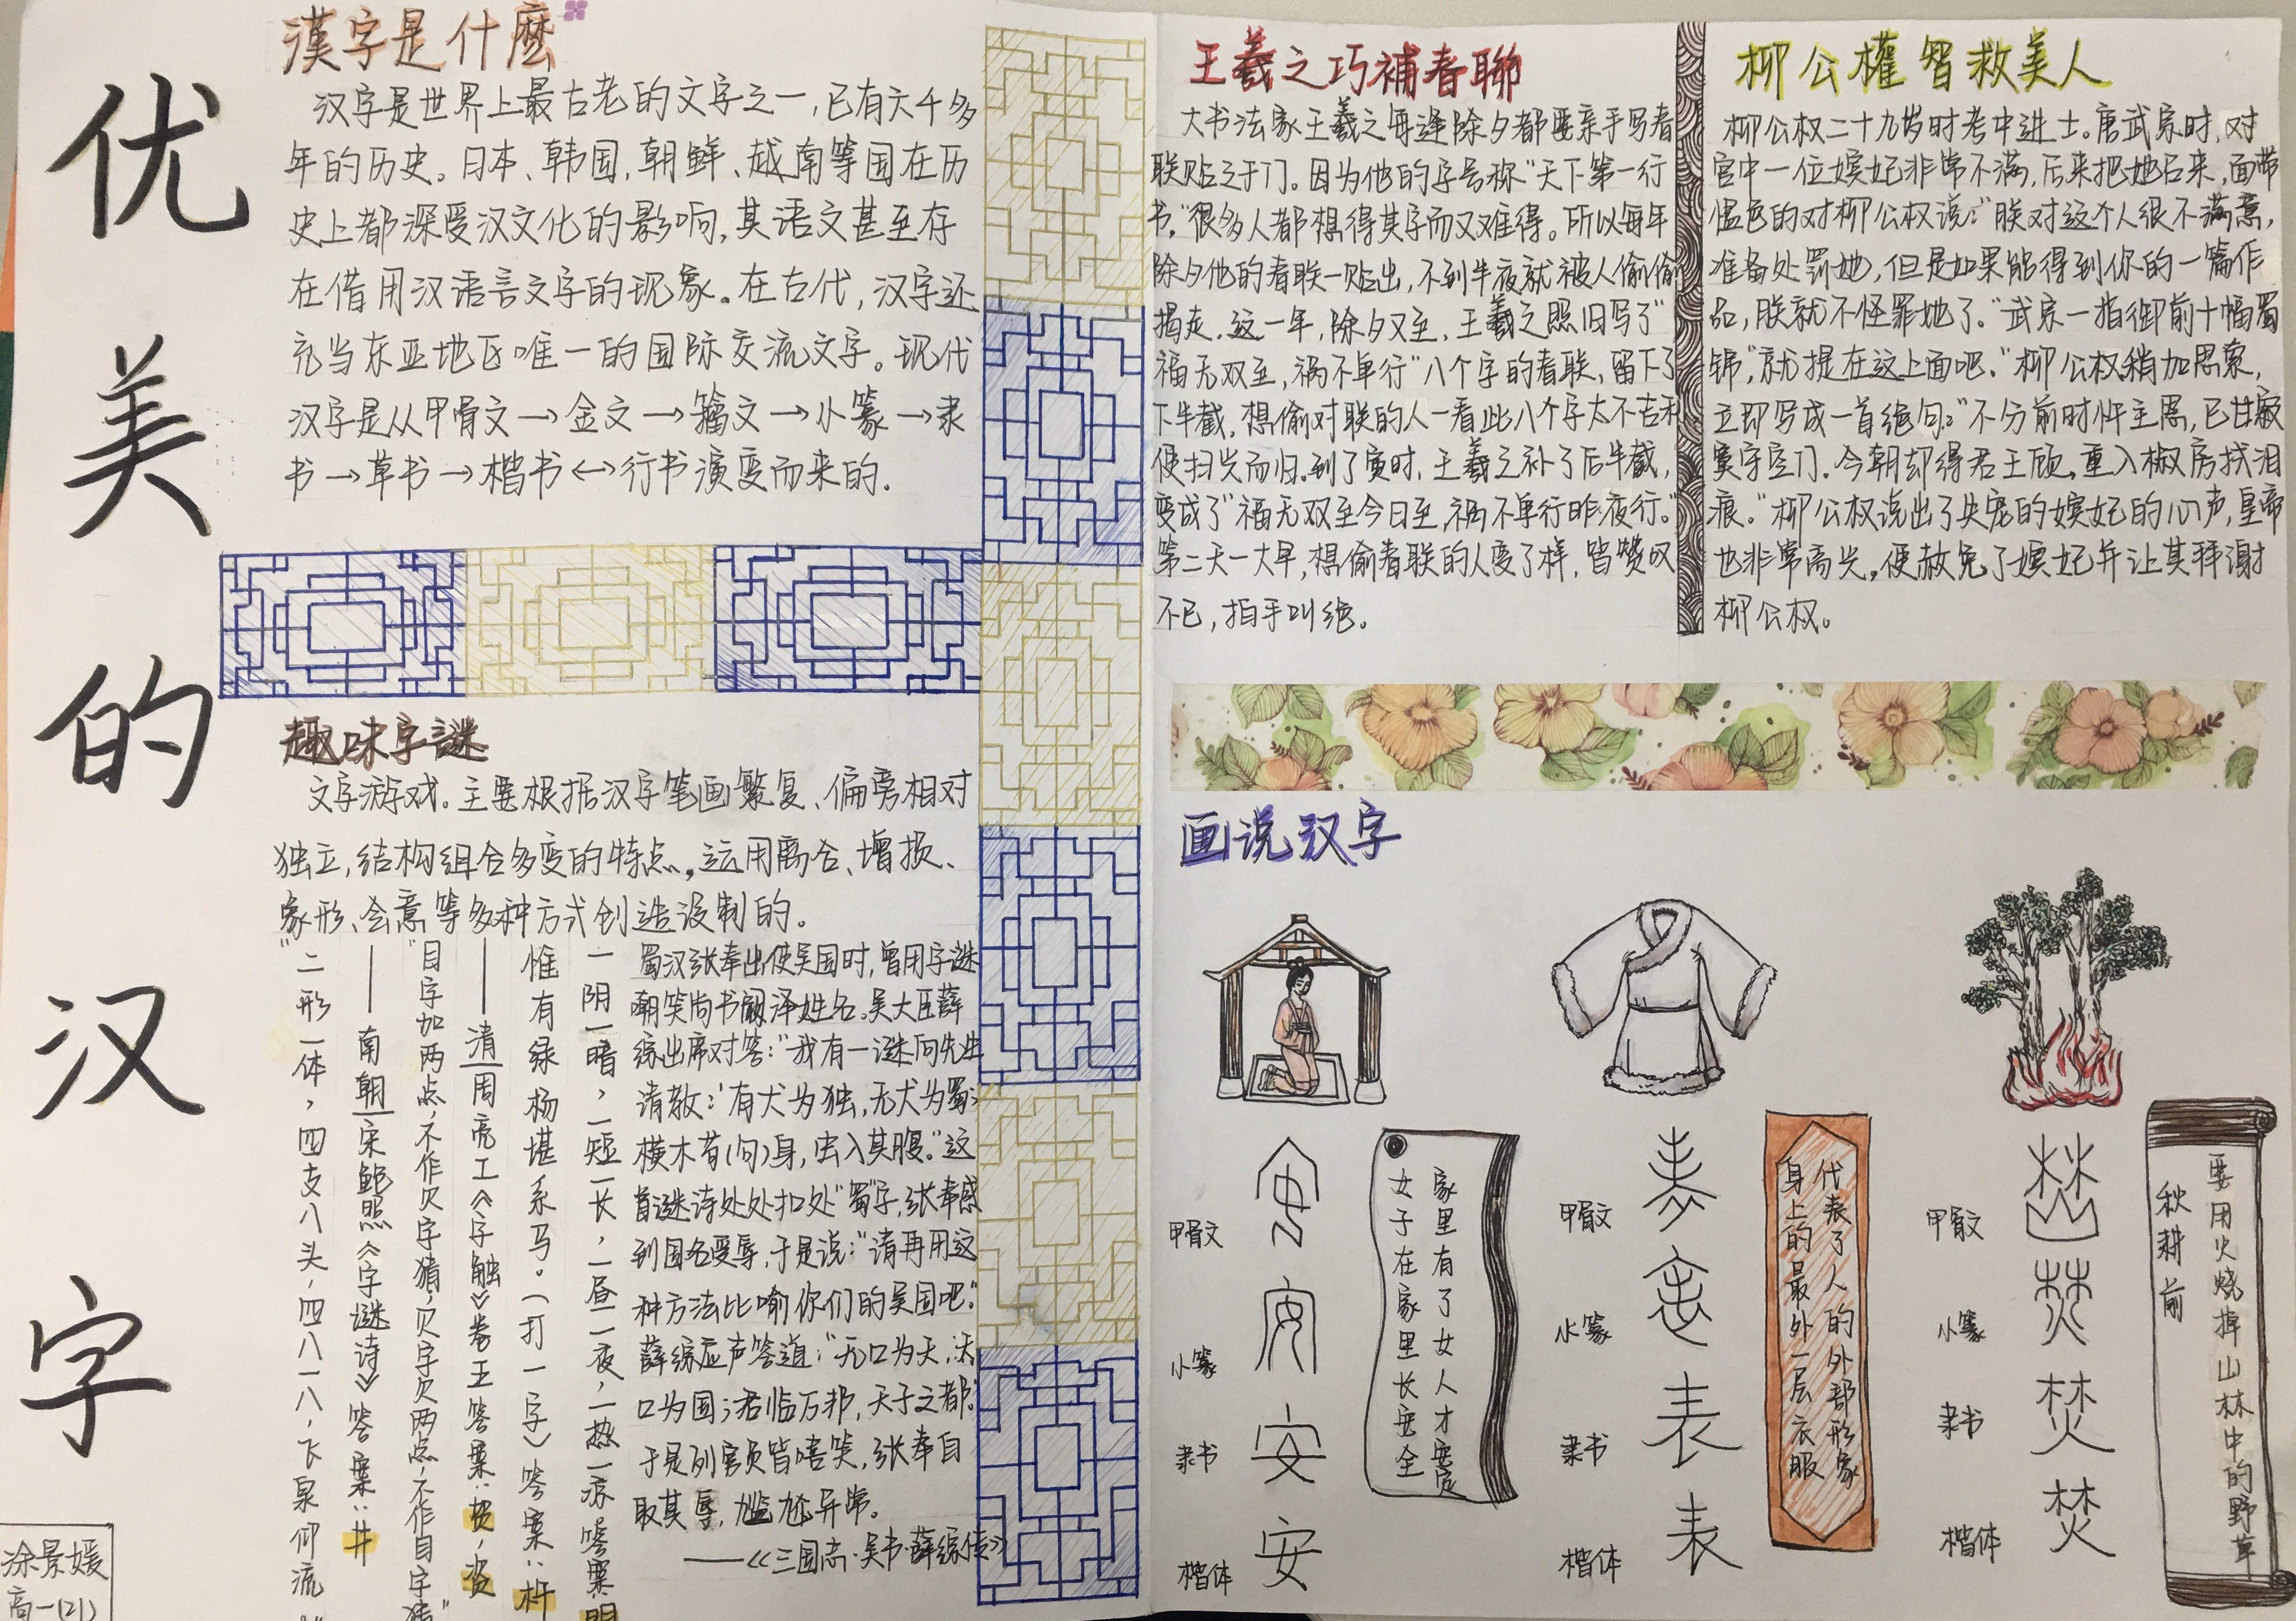 优美的汉字
漢字是什麽
汉字是世界上最古老的文字之一,已有六千多
年的历史。日本、韩国、朝鲜、越南等国在历
史上都深受汉文化的影响,其语文甚至存
在借用汉语言文字的现象。在古代,汉字还
充当东亚地区唯一的国际交流文字。现代
汉字是从甲骨文→金文→籀文→小篆→隶
书→草书→楷书↔行书演变而来的.
趣味字謎
文字游戏.主要根据汉字笔画繁复、偏旁相对
独立,结构组合多变的特点,运用离合、增损、
象形、会意等多种方式创造设制的。
"二形一体,四支八头,四八一八,飞泉仰流"
——南朝宋鲍照《字谜诗》答案:井
"目字加两点,不作贝字猜,贝字欠两点,不作目字猜"
——清周亮工《字触》卷五答案:贺,资
惟有绿杨堪系马.(打一字)答案:杆
一阴一暗,一短一长,一昼一夜,一热一凉答案明
蜀汉张奉出使吴国时,曾用字谜
嘲笑尚书阚泽姓名.吴大臣薛
综出席对答:"我有一谜向先生
请教:'有犬为独,无犬为蜀;
横木苟(句)身,虫入其腹."这
首谜诗处处扣处"蜀"字,张奉感
到国名受辱,于是说:"请再用这
种方法比喻你们的吴国吧."
薛综应声答道:"无口为天,沃
口为国;君临万邦,天子之都."
于是列官员皆嘻笑,张奉自
取其辱,尴尬异常。
——《三国志·吴书·薛综传》
涂景媛
高一(21)
王羲之巧補春聯
大书法家王羲之每逢除夕都要亲手写春
联贴之于门。因为他的字号称"天下第一行
书,"很多人都想得其字而又难得。所以每年
除夕他的春联一贴出,不到半夜就被人偷偷
揭走.这一年,除夕又至,王羲之照旧写了"
福无双至,祸不单行"八个字的春联,留下了
下半截,想偷对联的人一看此八个字太不吉利
便扫兴而归.到了寅时,王羲之补了后半截,
变成了"福无双至今日至,祸不单行昨夜行."
第二天一大早,想偷春联的人变了样,皆赞叹
不已,拍手叫绝。
柳公權智救美人
柳公权二十九岁时考中进士。唐武宗时,对
宫中一位嫔妃非常不满,后来把她召来,面带
愠色的对柳公权说:"朕对这个人很不满意,
准备处罚她,但是如果能得到你的一篇作
品,朕就不怪罪她了。"武宗一指御前十幅蜀
锦",就提在这上面吧。"柳公权稍加思索,
立即写成一首绝句:"不分前时忤主恩,已甘寂
寞守空门.今朝却得君王顾,重入椒房拭泪
痕。"柳公权说出了失宠的嫔妃的心声,皇帝
也非常高兴,便赦免了嫔妃并让其拜谢
柳公权。
画说汉字
甲骨文
小篆
隶书 安
楷体 安
家里有了女人才安定
女子在家里长安全
甲骨文
小篆
隶书 表
楷体 表
代表了人的外部形象
身上的最外一层衣服
甲骨文
小篆
隶书 焚
楷体 焚
要用火烧掉山林中的野草
秋耕前